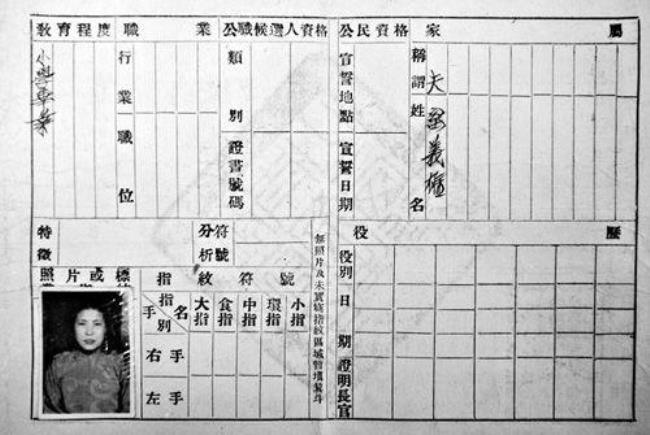 家屬
稱謂
夫
姓名
義
公民資格
宣誓地點
宣誓日期
公職候選人資格
類別
證書號碼
職業
行業
職位
教育程度
小學畢業
役歷
役別
日期
證明長官
特徵
符號
分析
照片或
指紋符號
指別
手別
名
大指
食指
中指
環指
小指
右手
左手
無照片及未實施指紋區域暫填箕斗